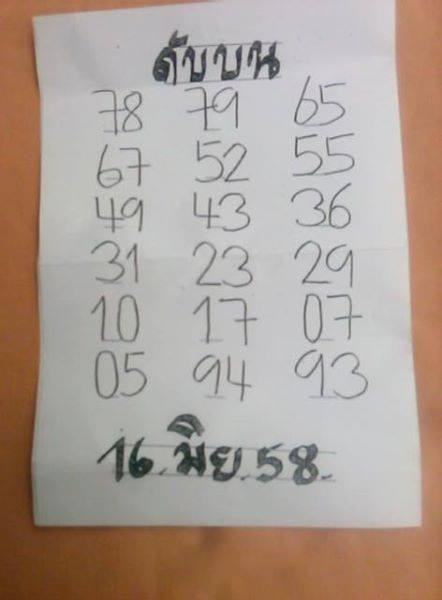 ดับบน
78 79 65
67 52 55
49 43 36
31 23 29
10 17 07
05 94 93
16.มิย.58.